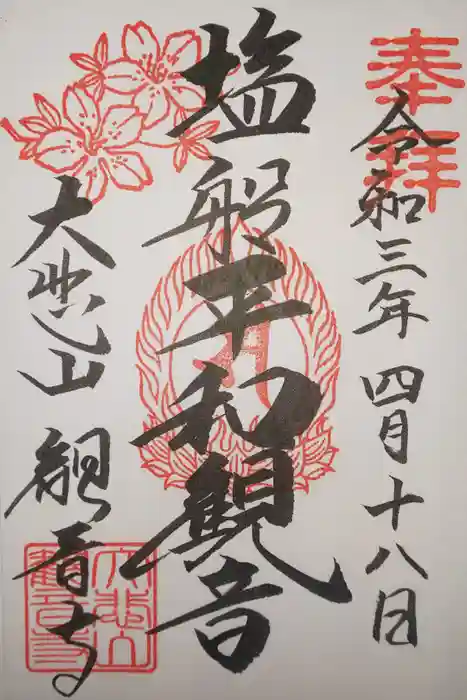 奉拝
令和三年四月十八日
塩船平和観音
大悲山
観音寺